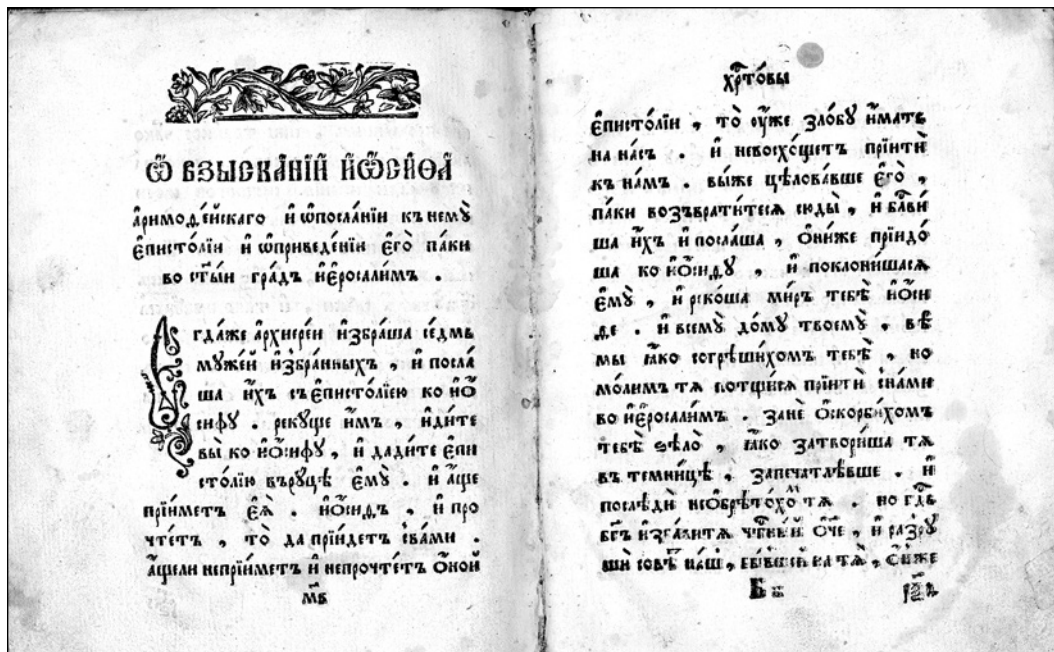 Ѿ ВЗЫСКА́НІИ ИѠ҆СИѲА
а҆римоѳе́йскаго и҆ ѡ҆посла́нїи къ немꙋ̀
е҆писто́лїи и҆ ѡ҆приведе́нїи є҆гѡ̀ па́ки
во ст҃ы́и гра́дъ і҆е҆росали́мъ .
Є҆гда́же а҆рхиере́и и҆збра́ша се́дмь
мꙋже́и и҆збра́нныхъ , и҆ посла́
ша и҆́хъ съ е҆писто́лїею ко ио҆́
сифꙋ . рекꙋще и҆̀мъ , и҆ди́те
вы̀ ко ио҆́сифꙋ , и҆ дади́те е҆пи
сто́лїю върꙋцѣ̀ є҆мꙋ̀ . и҆ а҆́ще
прїи́метъ є҆ѧ̀ . ио҆́сифъ , и҆ про
чте́тъ , то̀ да прїи́детъ сва́ми .
а҆́щели непрїи́метъ и҆ непрочте́тъ о҆́ной
м҃в
хрⷭ҇то́вы
е҆писто́лїи , то̀ оу҆́же зло́бꙋ и҆́мать
на на́съ . и҆ невосхо́щетъ прїитѝ
къ на́мъ . вы́же цѣлова́вше є҆гѡ̀ ,
па́ки возъврати́тесѧ сюды̀ , и҆ бл҃ви́
ша и҆́хъ и҆ посла́ша , о҆ни́же прїидо́
ша ко ио҆́сифꙋ , и҆ поклони́шасѧ
є҆мꙋ̀ , и҆ реко́ша ми́ръ тебѣ̀ ио҆́си
фе . и҆ всемꙋ̀ до́мꙋ твоемꙋ̀ , вѣ́
мы ꙗ҆́ко согрѣши́хомъ тебѣ̀ , но
мо́лимъ тѧ̀ потщи́сѧ прїитѝ сна́ми
во і҆е҆росали́мъ . занѐ о҆скорби́хомъ
тебѣ̀ ѕѣло̀ , ꙗ҆́ко затвори́ша тѧ̀
въ темни́цѣ , запечатлѣ́вше . и҆
послѣдѝ нео҆брѣто́хоⷨ тѧ̀ . но гдⷭ҇ь
бг҃ъ и҆зба́витѧ чⷭ҇тны́й о҆́че , и҆ разрꙋ
шѝ совѣ́ на́ш , бы́вшей на тѧ̀ , се́же
Б